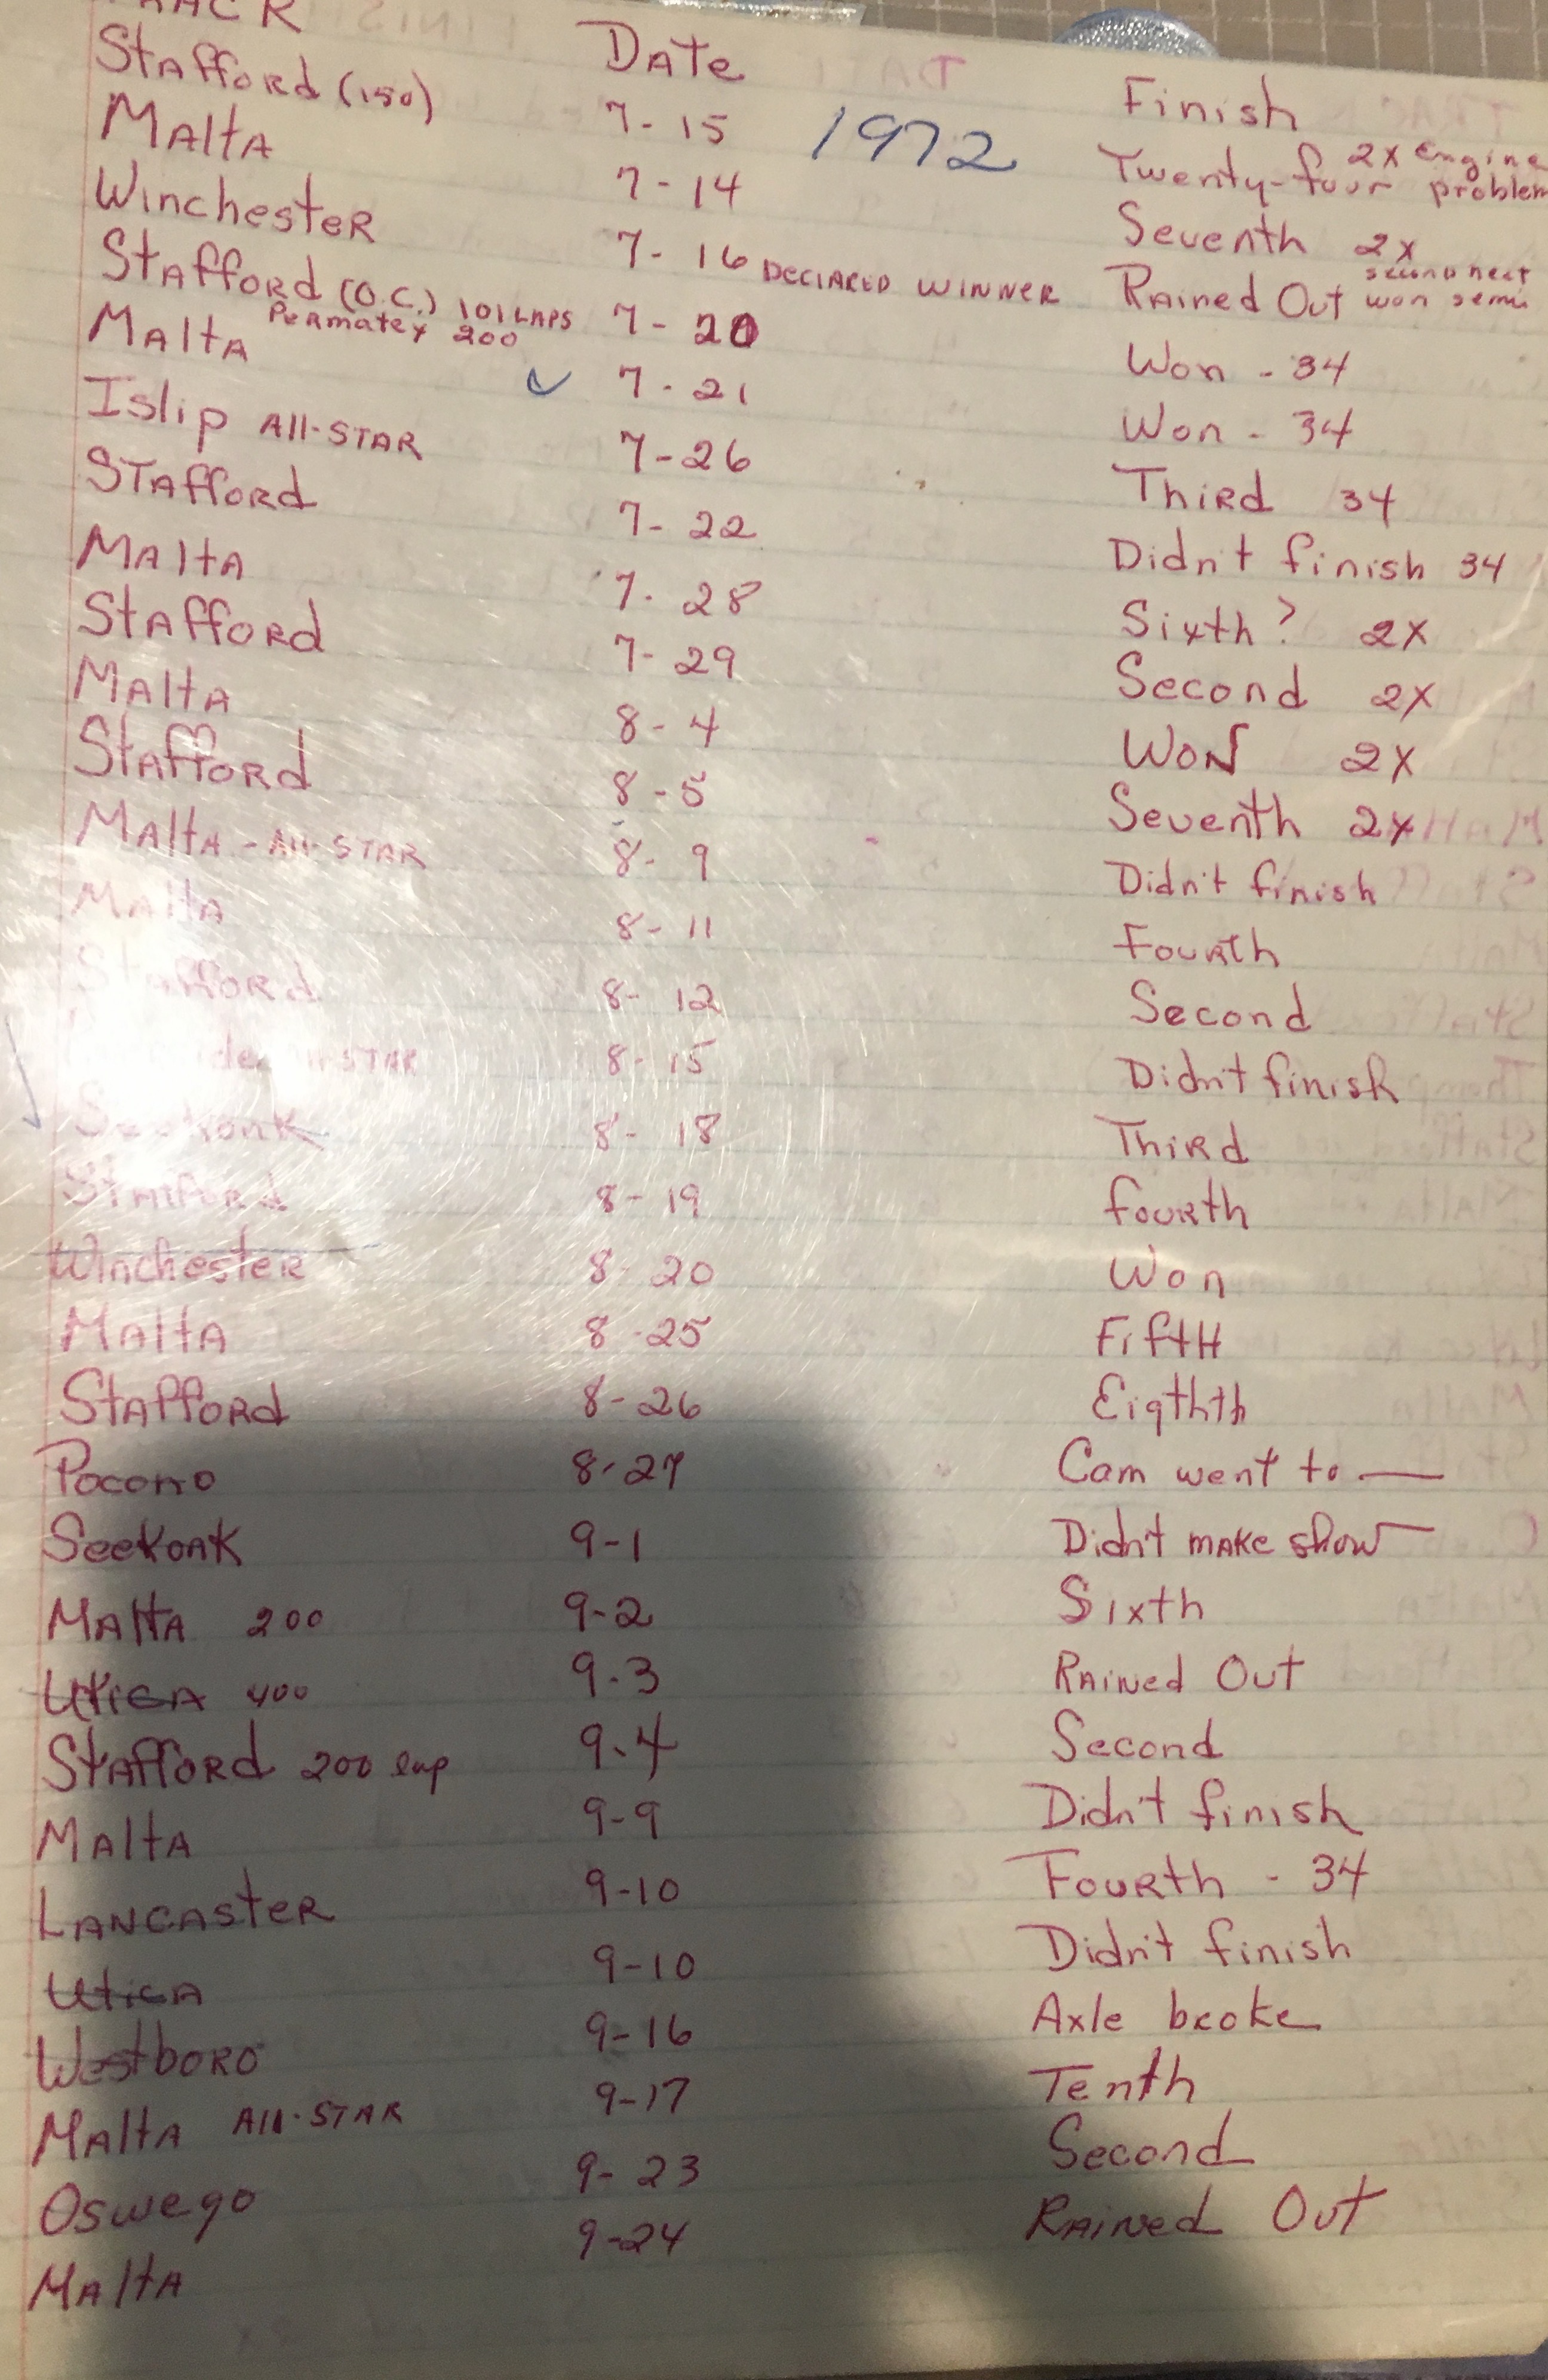 Date Finish
Stafford (150) 7-15 1972 Twenty-four 2X Engine problem
Malta 7-14 Seventh 2X
Winchester 7-16 DECLARED WINNER Rained Out won semi
Stafford (O.C.) 101 LAPS 7-20 Won - 34
Malta Permatex 200 7-21 Won - 34
Islip All-STAR 7-26 Third 34
Stafford 7-22 Didn't finish 34
Malta 7-28 Sixth? 2X
Stafford 7-29 Second 2X
Malta 8-4 Won 2X
Stafford 8-5 Seventh 2X
Malta - All-STAR 8-9 Didn't finish
Malta 8-11 Fourth
Stafford 8-12 Second
STAR 8-15 Didn't finish
Seekonk 8-18 Third
Stafford 8-19 fourth
Winchester 8-20 Won
Malta 8-25 Fifth
Stafford 8-26 Eigthth
Pocono 8-27 Cam went to —
Seekonk 9-1 Didn't make show
Malta 200 9-2 Sixth
Utica 400 9-3 Rained Out
Stafford 200 lap 9-4 Second
Malta 9-9 Didn't finish
Lancaster 9-10 Fourth - 34
Utica 9-10 Didn't finish
Westboro 9-16 Axle broke
Malta All-STAR 9-17 Tenth
Oswego 9-23 Second
Malta 9-24 Rained Out